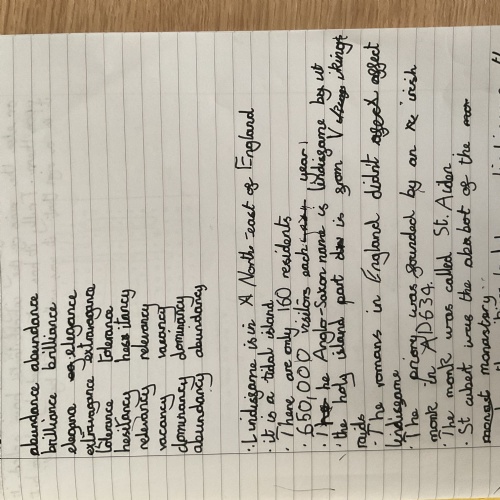 abundance abundance
brilliance brilliance
elegana elegance
extravagance extravagana
tolerance tolerana
hesitancy hesitancy
relevancy relevancy
vacancy vacancy
dominancy dominancy
abundancy abundancy
· Lindisfarne is in North-east of England
· it is a tidal island.
· There are only 160 residents
· 650,000 visitors each year!
· The Anglo-Saxon name is Lindisfarne but
the holy island part is from Vikings
raids
· The romans in England didn't affect
lindisfarne
· The priory was founded by an irish
monk in AD634.
· The monk was called St. Aiden
· St cubet was the abbot of the
monastary